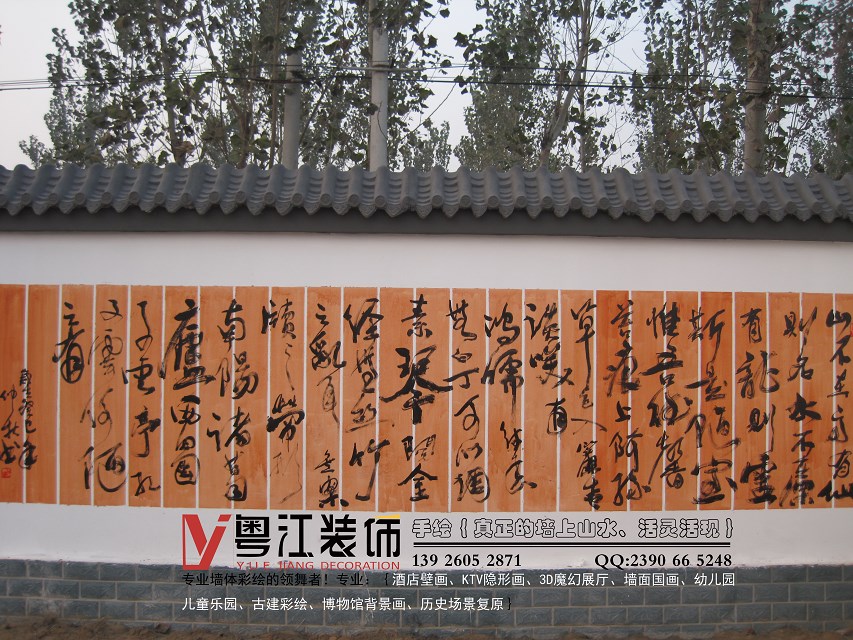 山不在高有仙
则名水不在深
有龍则靈
斯是陋室
惟吾德馨
苔痕上階綠
草色入簾青
談笑有
鸿儒往来
無白丁可以調
素琴閱金
經無絲竹
之亂耳無案
牍之勞形
南陽诸葛
廬西蜀
子雲亭孔
子云何陋
之有
癸巳年
仲秋
粤江装饰
YUE JIANG DECORATION
手绘{真正的墙上山水、活灵活现}
139 2605 2871 QQ:2390 66 5248
专业墙体彩绘的领舞者！专业：{酒店壁画、KTV隐形画、3D魔幻展厅、墙面国画、幼儿园
儿童乐园、古建彩绘、博物馆背景画、历史场景复原}